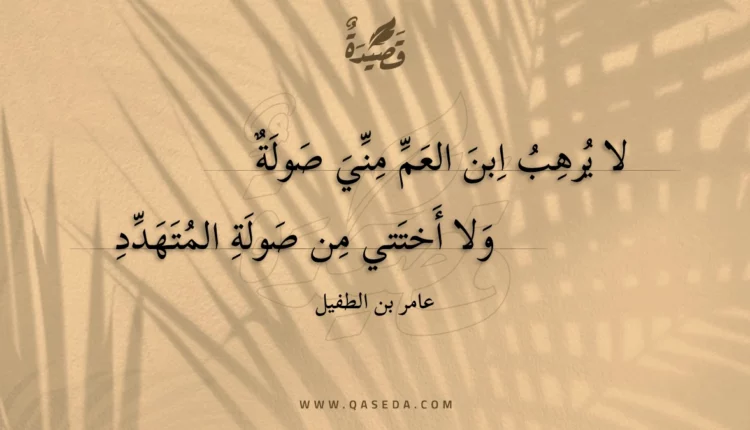 قَصِيْدَةٌ
لا يُرهِبُ اِبنَ العَمِّ مِنِّيَ صَولَةٌ
وَلا أَختَتي مِن صَولَةِ المُتَهَدِّدِ
عامر بن الطفيل
WWW.QASEDA.COM